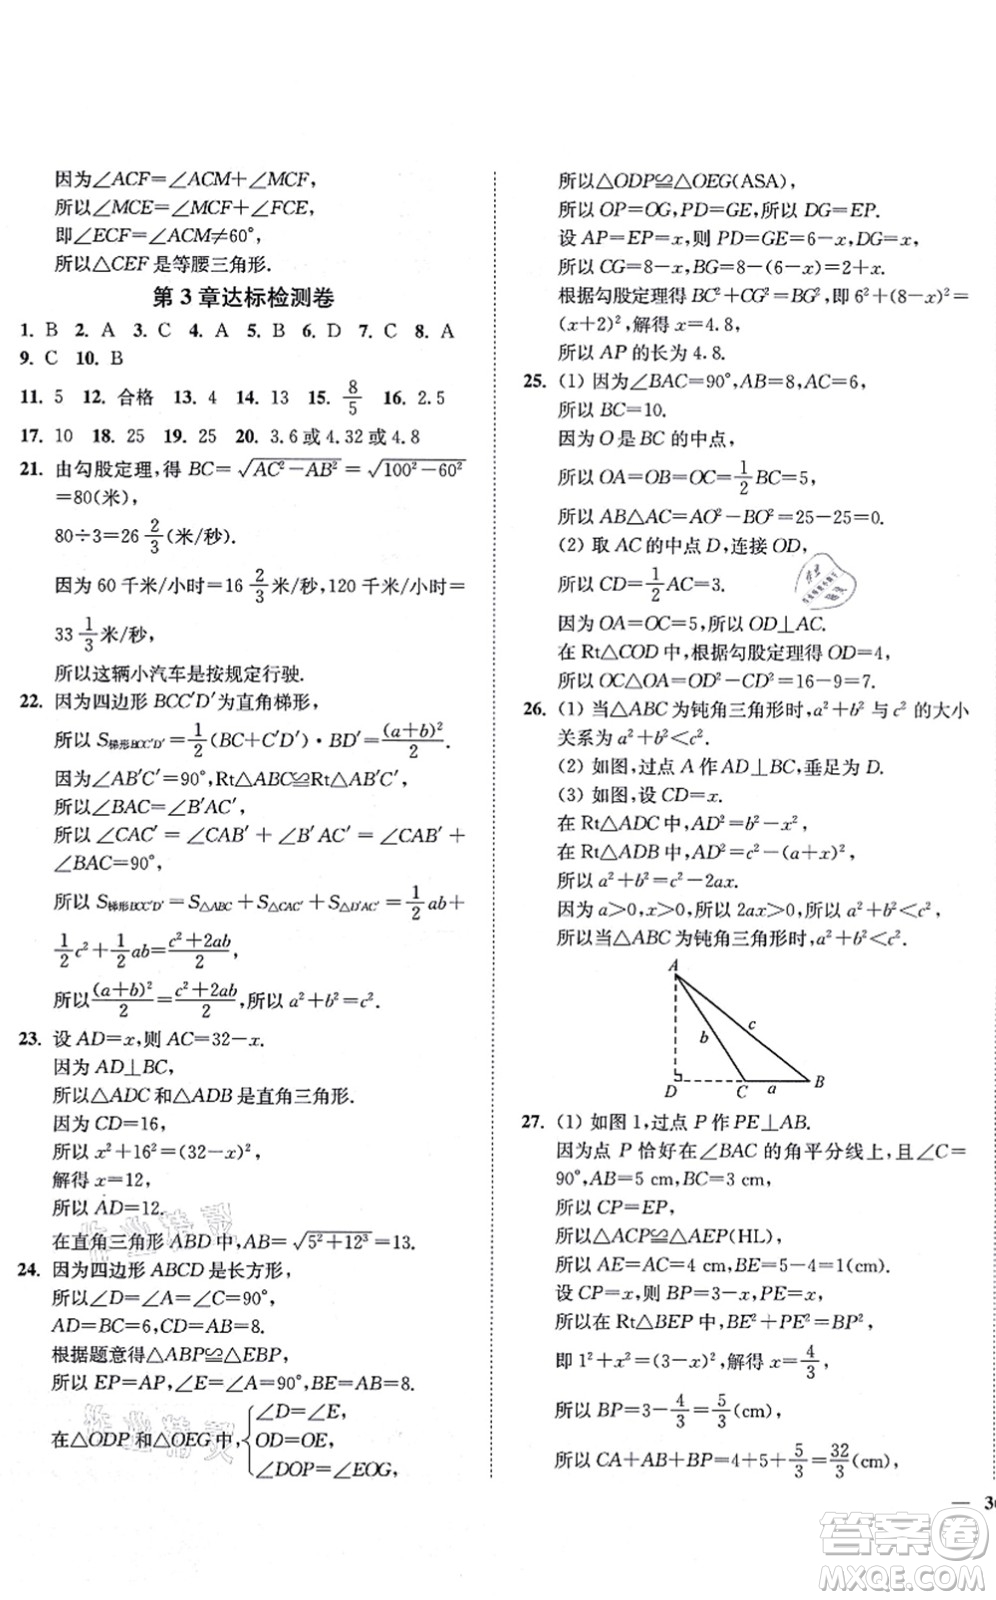 因为∠ACF=∠ACM+∠MCF,
所以∠MCE=∠MCF+∠FCE,
即∠ECF=∠ACM≠60°,
所以△CEF 是等腰三角形.
第 3 章达标检测卷
1. B 2. A 3. C 4. A 5. B 6. D 7. C 8. A
9. C 10. B
11. 5 12. 合格 13. 4 14. 13 15. 8/5 16. 2.5
17. 10 18. 25 19. 25 20. 3.6或4.32或4.8
21. 由勾股定理,得 BC=√(AC²-AB²)=√(100²-60²)
=80(米),
80÷3=26 2/3(米/秒).
因为 60 千米/小时=16 2/3米/秒,120 千米/小时=
33 1/3米/秒,
所以这辆小汽车是按规定行驶.
22. 因为四边形 BCC′D′为直角梯形,
所以 S梯形BCC′D′=1/2(BC+C′D′)·BD′=(a+b)²/2.
因为∠AB′C′=90°,Rt△ABC≌Rt△AB′C′,
所以∠BAC=∠B′AC′,
所以∠CAC′=∠CAB′+∠B′AC′=∠CAB′+
∠BAC=90°,
所以 S梯形BCC′D′=S△ABC+S△CAC′+S△D′AC′=1/2ab+
1/2c²+1/2ab=(c²+2ab)/2,
所以(a+b)²/2=(c²+2ab)/2,所以 a²+b²=c².
23. 设 AD=x,则 AC=32-x.
因为 AD⊥BC,
所以△ADC 和△ADB 是直角三角形.
因为 CD=16,
所以 x²+16²=(32-x)²,
解得 x=12,
所以 AD=12.
在直角三角形 ABD 中,AB=√(5²+12²)=13.
24. 因为四边形 ABCD 是长方形,
所以∠D=∠A=∠C=90°,
AD=BC=6,CD=AB=8.
根据题意得△ABP≌△EBP,
所以 EP=AP,∠E=∠A=90°,BE=AB=8.
在△ODP 和△OEG 中,{∠D=∠E,
OD=OE,
∠DOP=∠EOG,
所以△ODP≌△OEG(ASA),
所以 OP=OG,PD=GE,所以 DG=EP.
设 AP=EP=x,则 PD=GE=6-x,DG=x,
所以 CG=8-x,BG=8-(6-x)=2+x,
根据勾股定理得 BC²+CG²=BG²,即 6²+(8-x)²=
(x+2)²,解得 x=4.8,
所以 AP 的长为 4.8.
25. (1) 因为∠BAC=90°,AB=8,AC=6,
所以 BC=10.
因为 O 是 BC 的中点,
所以 OA=OB=OC=1/2BC=5,
所以 AB△AC=AO²-BO²=25-25=0.
(2) 取 AC 的中点 D,连接 OD,
所以 CD=1/2AC=3.
因为 OA=OC=5,所以 OD⊥AC.
在 Rt△COD 中,根据勾股定理得 OD=4,
所以 OC△OA=OD²-CD²=16-9=7.
26. (1) 当△ABC 为钝角三角形时,a²+b² 与 c² 的大小
关系为 a²+b²<c².
(2) 如图,过点 A 作 AD⊥BC,垂足为 D.
(3) 如图,设 CD=x.
在 Rt△ADC 中,AD²=b²-x²,
在 Rt△ADB 中,AD²=c²-(a+x)²,
所以 a²+b²=c²-2ax.
因为 a>0,x>0,所以 2ax>0,所以 a²+b²<c²,
所以当△ABC 为钝角三角形时,a²+b²<c².
A
b
c
D
C
a
B
27. (1) 如图 1,过点 P 作 PE⊥AB.
因为点 P 恰好在∠BAC 的角平分线上,且∠C=
90°,AB=5 cm,BC=3 cm,
所以 CP=EP,
所以△ACP≌△AEP(HL),
所以 AE=AC=4 cm,BE=5-4=1(cm).
设 CP=x,则 BP=3-x,PE=x,
所以在 Rt△BEP 中,BE²+PE²=BP²,
即 1²+x²=(3-x)²,解得 x=4/3,
所以 BP=3-4/3=5/3(cm),
所以 CA+AB+BP=4+5+5/3=32/3(cm),
答案卷
MXQE.COM